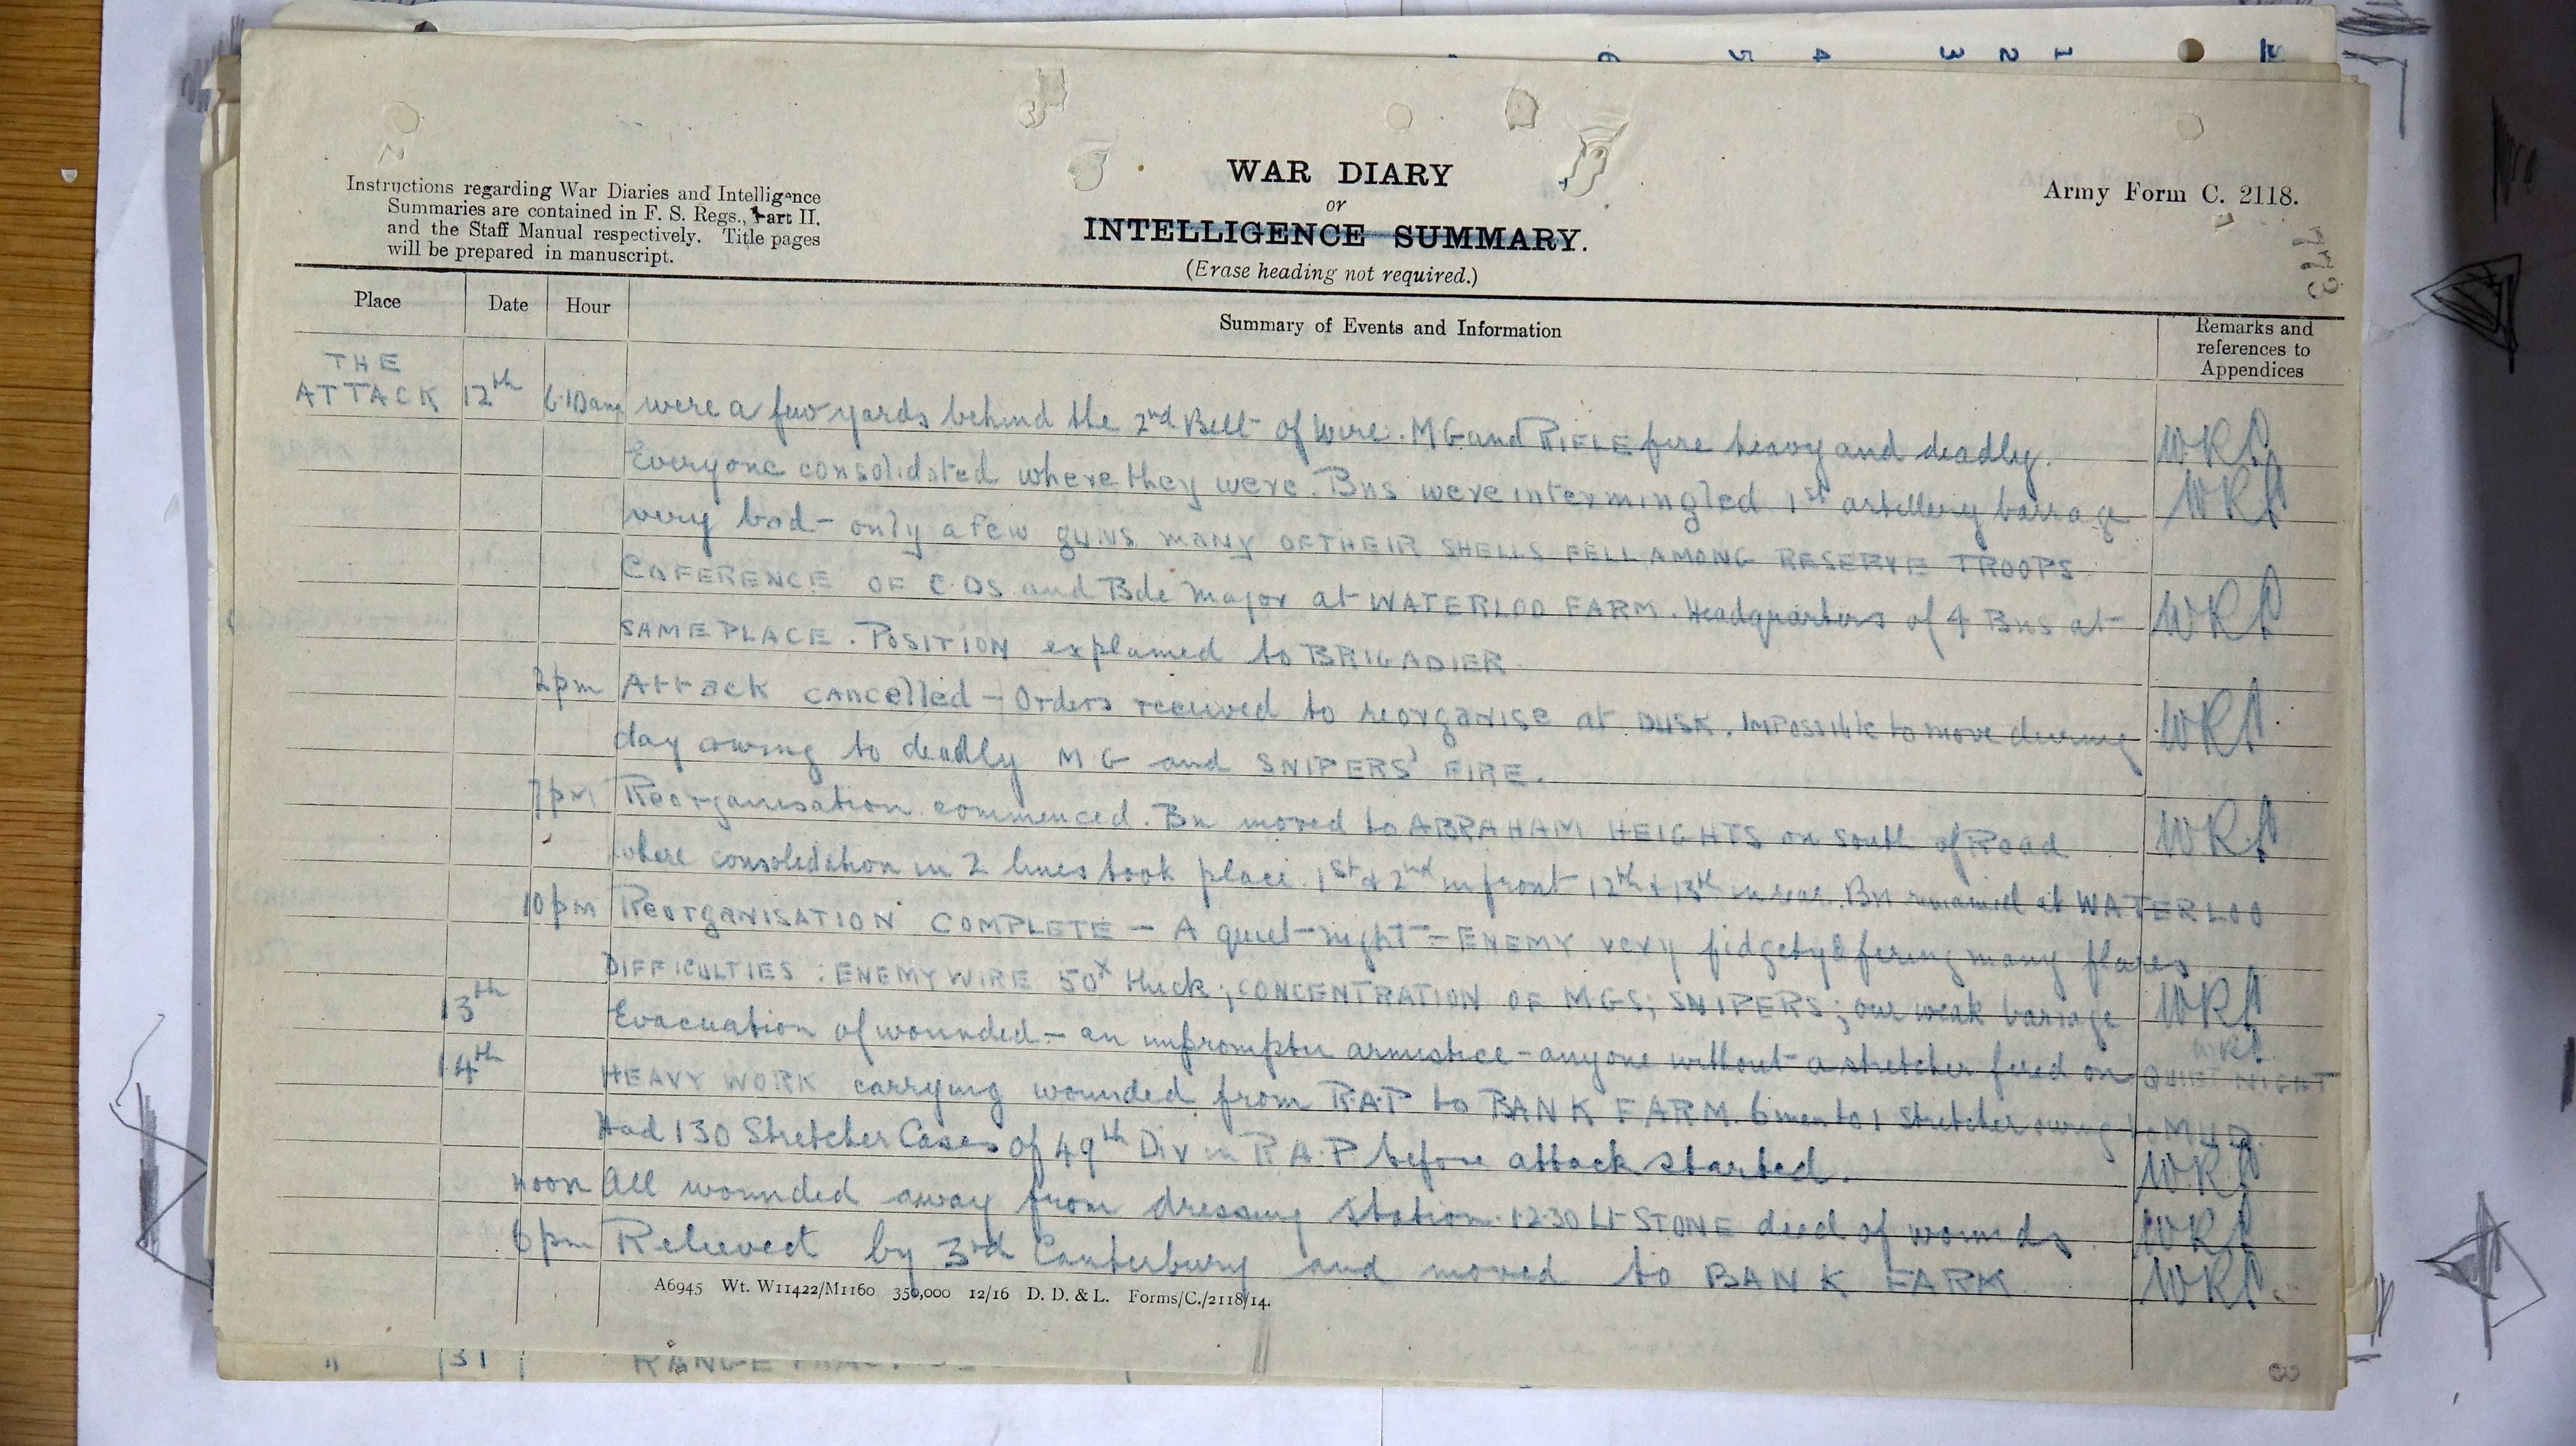 Instructions regarding War Diaries and Intelligence
Summaries are contained in F. S. Regs., Part II.
and the Staff Manual respectively. Title pages
will be prepared in manuscript.
WAR DIARY
or
INTELLIGENCE SUMMARY.
(Erase heading not required.)
Army Form C. 2118.
Place Date Hour Summary of Events and Information Remarks and references to Appendices
THE
ATTACK 12th 6.10am were a few yards behind the 2nd Belt of Wire. MG and RIFLE fire heavy and deadly.
Everyone consolidated where they were. Bns were intermingled 1st artillery barrage
very bad - only a few guns many OF THEIR SHELLS FELL AMONG RESERVE TROOPS.
COFERENCE OF C.OS and Bde Major at WATERLOO FARM. Headquarters of 4 Bns at
SAME PLACE. POSITION explained to BRIGADIER
2pm Attack cancelled - Orders received to reorganise at DUSK. Impossible to move during
day owing to deadly MG and SNIPERS' FIRE.
7pm Reorganisation commenced. Bn moved to ABRAHAM HEIGHTS on south of Road
where consolidation in 2 lines took place. 1st & 2nd in front 12th & 13th in rear. Bn remained at WATERLOO
10pm REORGANISATION COMPLETE - A quiet night - ENEMY very fidgety & firing many flares
DIFFICULTIES: ENEMY WIRE 50x thick; CONCENTRATION OF M.GS; SNIPERS; our weak barrage
13th Evacuation of wounded - an impromptu armistice - anyone without a stretcher fired on QUIET NIGHT
14th HEAVY WORK carrying wounded from R.A.P to BANK FARM. 6 men to 1 stretcher owing to MUD.
Had 130 Stretcher Cases of 49th Div in R.A.P before attack started.
noon All wounded away from dressing station. 12.30 Lt STONE died of wounds.
6pm Relieved by 3rd Canterbury and moved to BANK FARM
A6945 Wt. W11422/M1160 350,000 12/16 D. D. & L. Forms/C./2118/14.
" 31